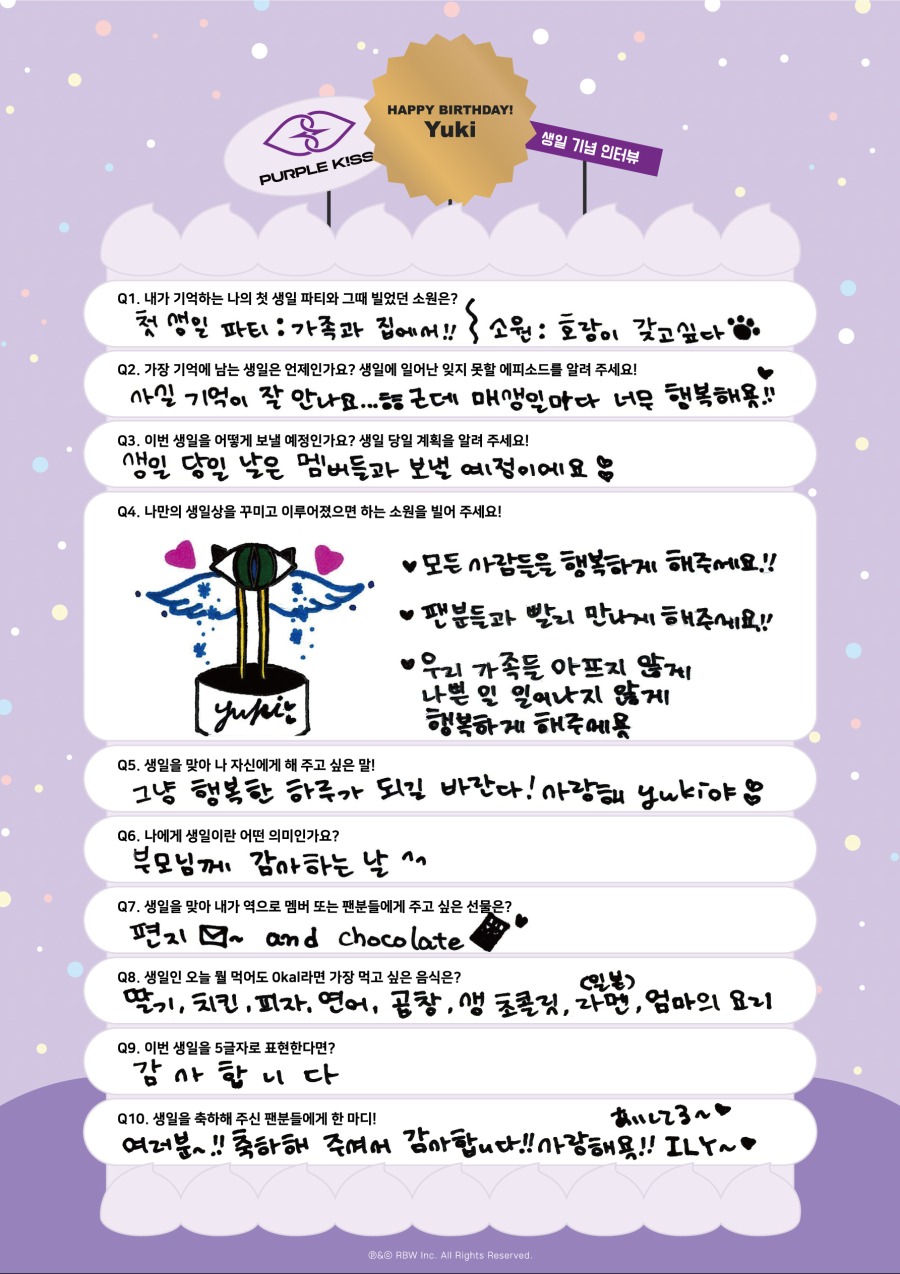 HAPPY BIRTHDAY!
Yuki
PURPLE K!SS
생일 기념 인터뷰
Q1. 내가 기억하는 나의 첫 생일 파티와 그때 빌었던 소원은?
첫 생일 파티 : 가족과 집에서!! 소원 : 호랑이 갖고싶다
Q2. 가장 기억에 남는 생일은 언제인가요? 생일에 일어난 잊지 못할 에피소드를 알려 주세요!
사실 기억이 잘 안나요...ㅎㅎ 근데 매생일마다 너무 행복해욧!!
Q3. 이번 생일을 어떻게 보낼 예정인가요? 생일 당일 계획을 알려 주세요!
생일 당일 날은 멤버들과 보낼 예정이에요
Q4. 나만의 생일상을 꾸미고 이루어졌으면 하는 소원을 빌어 주세요!
♥ 모든 사람들을 행복하게 해주세요!!
♥ 팬분들과 빨리 만나게 해주세요!!
♥ 우리 가족들 아프지 않게
나쁜 일 일어나지 않게
행복하게 해주세욧
yuki
Q5. 생일을 맞아 나 자신에게 해 주고 싶은 말!
그냥 행복한 하루가 되길 바란다! 사랑해 yuki야
Q6. 나에게 생일이란 어떤 의미인가요?
부모님께 감사하는 날 ^^
Q7. 생일을 맞아 내가 역으로 멤버 또는 팬분들에게 주고 싶은 선물은?
편지 ~ and chocolate ♥
Q8. 생일인 오늘 뭘 먹어도 0kal라면 가장 먹고 싶은 음식은?
(일본)
딸기, 치킨, 피자, 연어, 곱창, 생 초콜릿, 라멘, 엄마의 요리
Q9. 이번 생일을 5글자로 표현한다면?
감 사 합 니 다
Q10. 생일을 축하해 주신 팬분들에게 한 마디!
あいしてる~♥
여러분~!! 축하해 주셔서 감사합니다!! 사랑해욧!! ILY~♥
℗&© RBW Inc. All Rights Reserved.